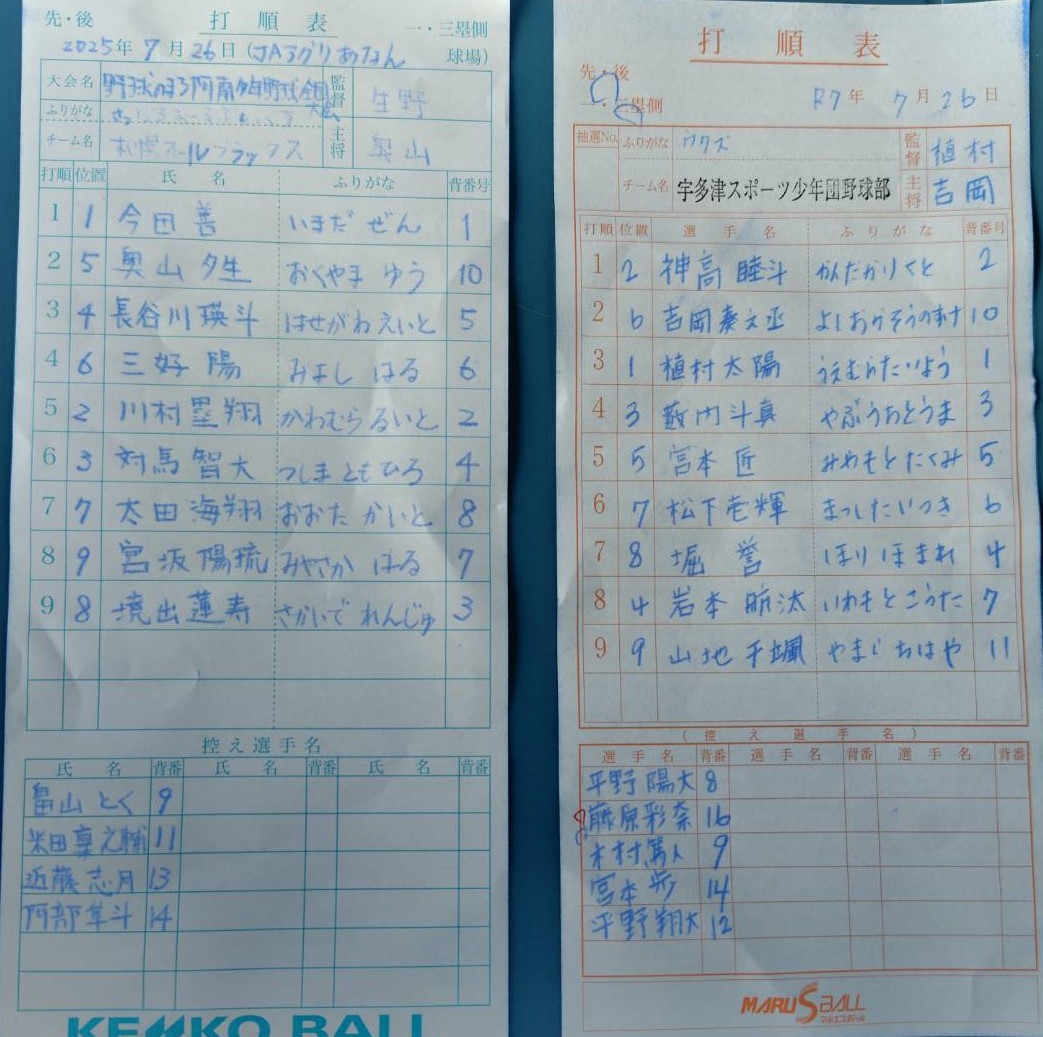 先・後 打順表 一・三塁側
2025年 7月 26日 (JAアグリあなん 球場)
大会名 野球のまち阿南少年野球全国大会 監督 生野
ふりがな
チーム名 札幌オールブラックス 主将 奥山
打順 位置 氏名 ふりがな 背番号
1 1 今田善 いまだ ぜん 1
2 5 奥山夕生 おくやま ゆう 10
3 4 長谷川瑛斗 はせがわえいと 5
4 6 三好陽 みよし はる 6
5 2 川村塁翔 かわむら るいと 2
6 3 対馬智大 つしま ともひろ 4
7 7 太田海翔 おおた かいと 8
8 9 宮坂陽琉 みやさか はる 7
9 8 境出蓮寿 さかいで れんじゅ 3
控え選手名
氏名 背番 氏名 背番 氏名 背番
畠山とく 9
米田稟之輔 11
近藤志月 13
阿部隼斗 14
KENKO BALL
打順表
先・後
一・三塁側 R7年 7月 26日
抽選No. ふりがな ウタズ 監督 植村
チーム名 宇多津スポーツ少年団野球部 主将 吉岡
打順 位置 選手名 ふりがな 背番号
1 2 神高睦斗 かんだかりくと 2
2 6 吉岡奏文丞 よしおかそうのすけ 10
3 1 植村太陽 うえむらたいよう 1
4 3 藪内斗真 やぶうちとうま 3
5 5 宮本匠 みやもとたくみ 5
6 7 松下壱輝 まつしたいつき 6
7 8 堀誉 ほり ほまれ 4
8 4 岩本航汰 いわもと こうた 7
9 9 山地千颯 やまじ ちはや 11
(控え選手名)
選手名 背番 選手名 背番 選手名 背番
平野陽大 8
藤原彩奈 16
木村篤人 9
宮本歩 14
平野翔大 12
MARU S BALL
マルエスボール